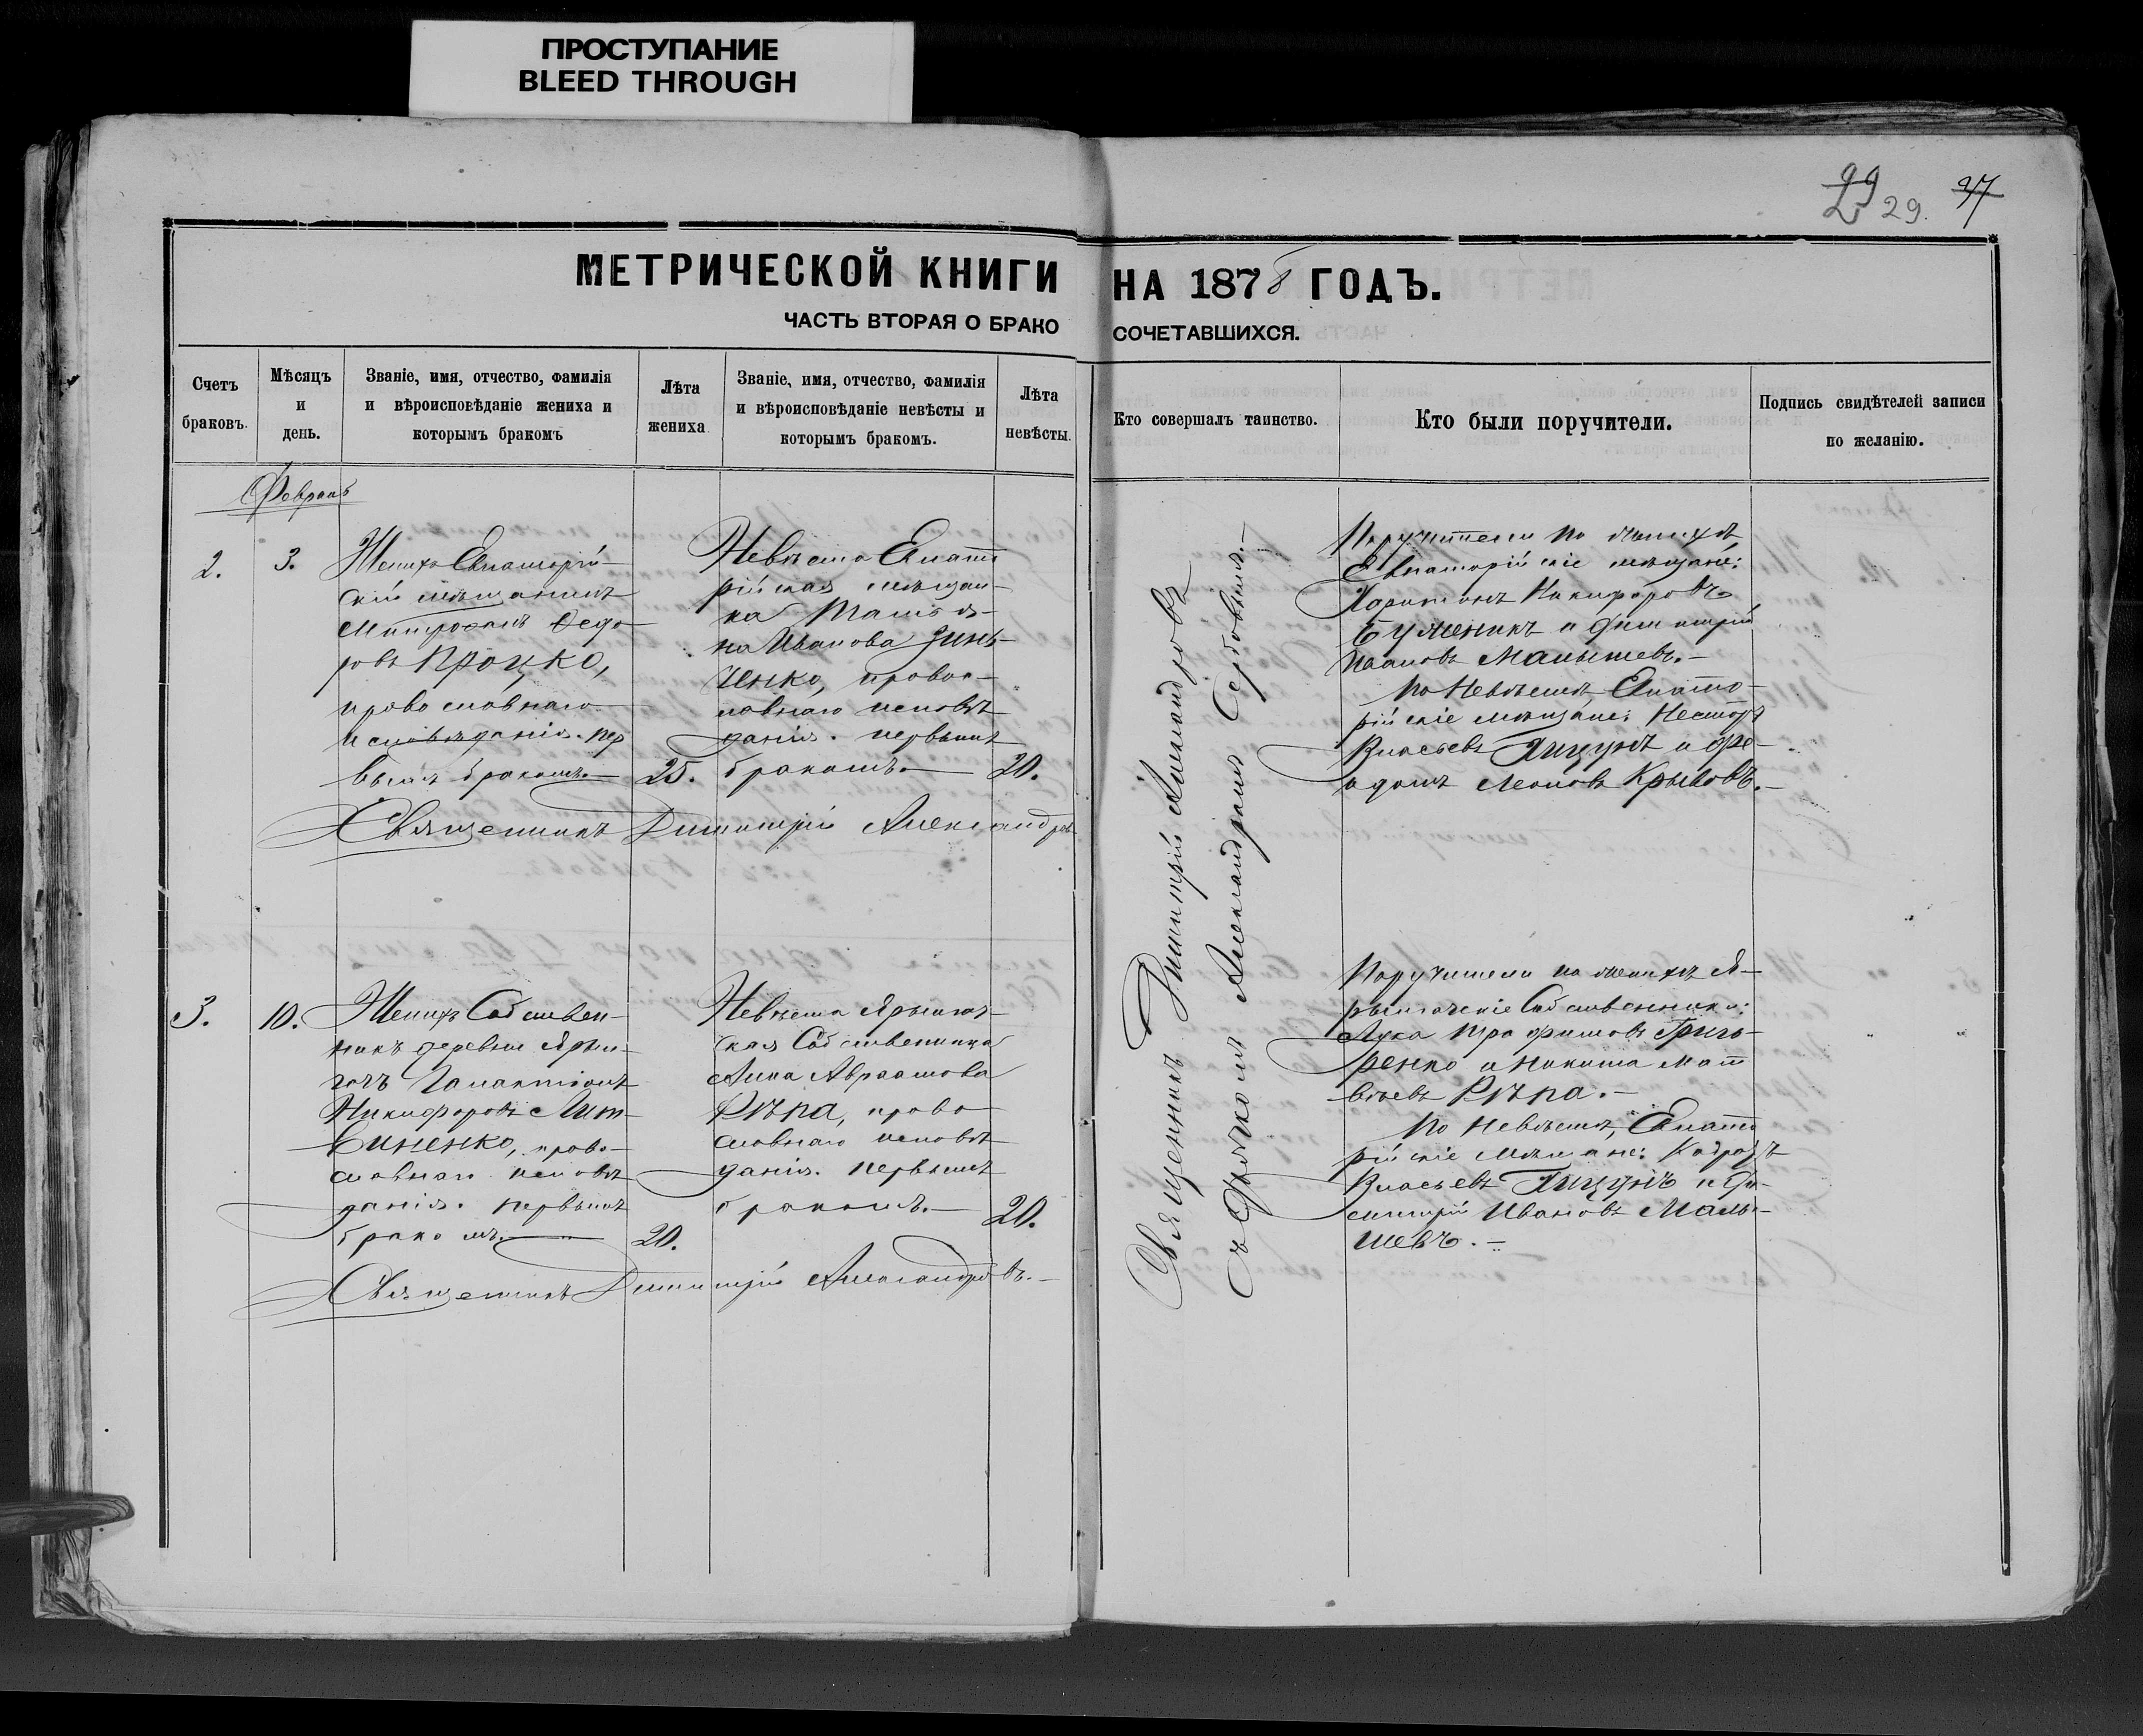 ПРОСТУПАНИЕ
BLEED THROUGH
29 29. 37
МЕТРИЧЕСКОЙ КНИГИ НА 1878 ГОДЪ.
ЧАСТЬ ВТОРАЯ О БРАКОСОЧЕТАВШИХСЯ.
Счетъ браковъ.
Мѣсяцъ и день.
Званіе, имя, отчество, фамилія
и вѣроисповѣданіе жениха и
которымъ бракомъ
Лѣта жениха
Званіе, имя, отчество, фамилія
и вѣроисповѣданіе невѣсты и
которымъ бракомъ.
Лѣта невѣсты.
Кто совершалъ таинство.
Кто были поручители.
Подпись свидѣтелей записи
по желанію.
Февраль
2.
3.
Женихъ Евпаторій-
скій мѣщанинъ
Митрофанъ Ѳедо-
ровъ Процко,
православнаго
исповѣданія. пер
вымъ бракомъ.—
25.
Невѣста Евпато
рійская мѣщан-
ка Татья-
на Иванова Зинь-
ченко, правос-
лавнаго исповѣ
данія. первымъ
бракомъ.—
20.
Священникъ Димитрій Александровъ
Священникъ Димитрій Александровъ
съ Дьячкомъ Александромъ Сербовымъ.—
Поручители по женихѣ
Евпаторійскіе мѣщане:
Харитонъ Никифоровъ
Бужепикъ и Димитрій
Ивановъ Малышевъ.—
По невѣстѣ, Евпато-
рійскіе мѣщане: Несторъ
Власьевъ Гицунъ и Ѳе-
одотъ Леоновъ Крывовъ.—
3.
10.
Женихъ Собствен-
никъ деревни Ярыл-
гачъ Галактіонъ
Никифоровъ Лит-
виненко, право-
славнаго исповѣ
данія. первымъ
бракомъ.—
20.
Невѣста Ярылгач-
ская Собственница
Анна Авраамова
Рѣпа, право
славнаго исповѣ
данія. первымъ
бракомъ.—
20.
Священникъ Димитрій Александровъ.—
Поручители по женихѣ Я-
рылгачскіе Собственники:
Лука Трофимовъ Григо-
ренко и Никита Мат
вѣевъ Рѣпа.—
По невѣстѣ, Евпато
рійскіе мѣщане: Кодратъ
Власьевъ Гицунъ и Ди-
митрій Ивановъ Малы-
шевъ.—